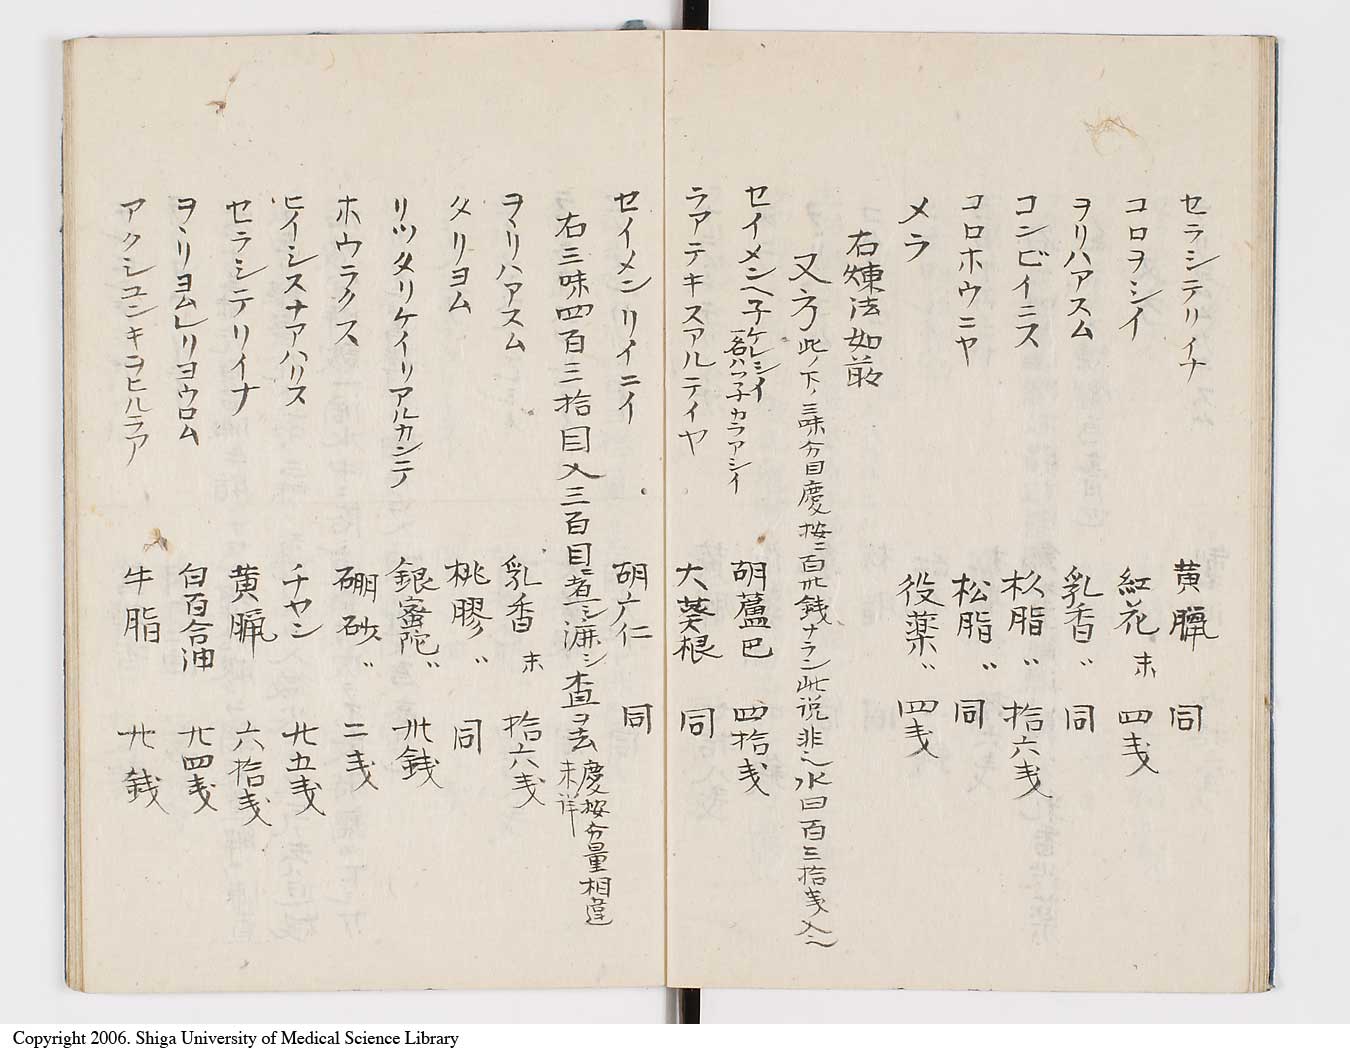 セラシテリイナ 黄臘 同
コロヲシイ 紅花末 四戔
ヲリハアスム 乳香〃 同
コンビイニス 杉脂〃 拾六戔
コロホウニヤ 松脂〃 同
メラ 役薬〃 四戔
右煉法如前
又方此ノ下ノ三味分目慶按ニ百廿銭ナラン此説非也水四百三拾戔入ヘシ
セイメンヘ子ケレシイ 胡蘆巴 四拾戔
名ハッ子カラアシイ
ラアテキスアルテイヤ 大葵根 同
セイメンリイニイ 胡广仁 同
右三味四百三拾目入三百目ニ煮シ漉シ査ヲ去慶按分量相違未詳
ヲヽリハアスム 乳香末 拾六戔
タリヨム 桃膠〃 同
リツタリケイリアルカンテ 銀蜜陀〃 卅銭
ホウラクス 硼砂〃 二戔
ヒイシスナアハリス チヤン 廿五戔
セラシテリイナ 黄臘 六拾戔
ヲヽリヨムレリヨウロム 白百合油 廿四戔
アクシユンキヲヒルラア 牛脂 廿銭
Copyright 2006. Shiga University of Medical Science Library